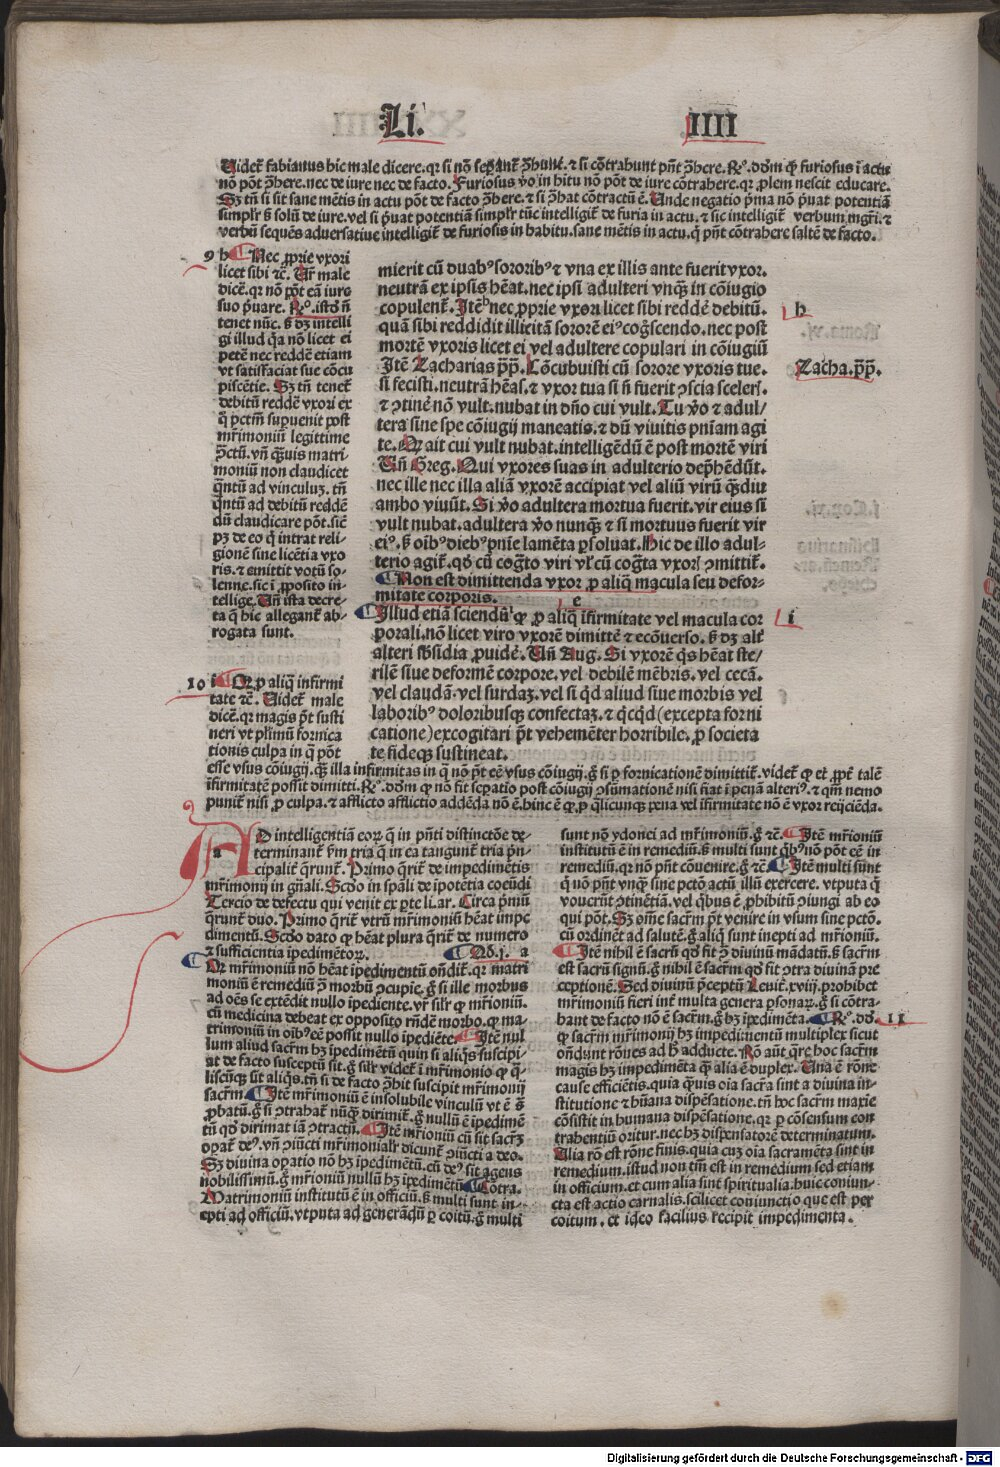 Li. IIII
Videt᷑ fabianus hic male dicere. qr si nō sepant᷑ ꝯhunt. ⁊ si cōtrahunt pn̄t ꝯhere. Rº. dōm ꝙ furiosus ī actu
nō pōt ꝯhere. nec de iure nec de facto. Furiosus v̄o in hitu nō pōt de iure cōtrahere. qr ꝓlem nescit educare.
Sꝫ tn̄ si sit sane mētis in actu pōt de facto ꝯhere. ⁊ si ꝯhat cōtractū ē. Unde negatio p̄ma nō p̄uat potentiā
simpl̄r ſꝫ solū de iure. vel si p̄uat potentiā simpl̄r tūc intelligit᷑ de furia in actu. ⁊ sic intelligit᷑ verbum mgr̄i. ⁊
verbū sequēs adversative intelligit᷑ de furiosis in habitu. sane mētis in actu. q̄ pn̄t cōtrahere saltē de facto.
9 h Nec ꝓprie vxori
licet sibi ⁊c̄. Ur̄ male
dicē. qr nō pōt eā iure
suo p̄uare. Rº. istō n̄
tenet nūc. ſꝫ dꝫ intelli
gi illud qꝛa nō licet ei
petē nec reddē etiam
vt satisfaciat sue cōcu
piscētie. Sꝫ tn̄ tenet᷑
debitū reddē vxori ex
q̊ pctm̄ supuenit post
mr̄imoniū legittime
ꝯctū. vn̄ q̄uis matri
moniū non claudicet
q̄ntū ad vinculuꝫ. tn̄
q̄ntū ad debitū reddē
dū claudicare pōt. sic̄
pꝫ de eo q̄ intrat reli-
gionē sine licētia vxo
ris. ⁊ emittit votū so-
lenne. sic ī ꝓposito in-
tellige. Un̄ ista decre-
ta q̄ hic allegant᷑ ab-
rogata sunt.
mierit cū duabꝰ sororibꝰ ⁊ vna ex illis ante fuerit vxor.
neutrā ex ipsis hēat. nec ipsi adulteri vnq̄ in cōiugio
copulent᷑. Itē h nec ꝓprie vxori licet sibi reddē debitū.
quā sibi reddidit illicitā sororē eiꝰ cog̊scendo. nec post
mortē vxoris licet ei vel adultere copulari in cōiugiū
Itē Zacharias pp̄. Cōcubuisti cū sorore vxoris tue.
si fecisti. neutrā hēas. ⁊ vxor tua si n̄ fuerit ꝯscia sceler᷑.
⁊ ꝯtinē nō vult. nubat in dn̄o cui vult. Tu v̄o ⁊ adul/
tera sine spe cōiugij maneatis. ⁊ dū viuitis pn̄iam agi
te. Q̄ ait cui vult nubat. intelligēdū ē post mortē viri
Un̄ Greg. Qui vxores suas in adulterio dep̄hēdūt.
nec ille nec illa aliā vxorē accipiat vel aliū virū q̄diu
ambo viuūt. Si v̄o adultera mortua fuerit. vir eius si
vult nubat. adultera v̄o nunq̄ ⁊ si mortuus fuerit vir
eiꝰ. ſꝫ oībꝰ diebꝰ pn̄ie lamēta ꝑsoluat. Hic de illo adul-
terio agit᷑. qd̄ cū cog̊to viri vl̄ cū cog̊ta vxor᷑ ꝯmittit᷑.
Non est dimittenda vxor ꝓ aliq̄ macula seu defor-
mitate corporis. e
Illud etiā sciendū i ꝙ ꝓ aliq̄ īfirmitate vel macula cor
porali. nō licet viro vxorē dimittē ⁊ ecōuerso. ſꝫ dꝫ alt᷑
alteri sb̄sidia ꝓuidē. Un̄ Aug. Si vxorē q̄s hēat ste/
rilē siue deformē corpore. vel debilē mēbris. vel cecā.
vel claudā. vel surdaꝫ. vel si qd̄ aliud siue morbis vel
laboribꝰ doloribusqꝫ confectaꝫ. ⁊ qͥcqͥd (excepta forni
catione) excogitari p̄t vehemēter horribile. ꝓ societa
te fideqꝫ sustineat.
h
Zacha. pp̄.
i
10 i Q̄ ꝓ aliq̄ infirmi
tate ⁊c̄. Videt᷑ male
dicē. qr magis p̄t susti
neri vt plīmū fornica
tionis culpa in q̄ pōt
esse vsus cōiugij. q̄ illa infirmitas in q̄ nō p̄t eē vsus cōiugij. g̊ si ꝓ fornicationē dimittit᷑. videt᷑ ꝙ et ꝓpt᷑ talē
īfirmitatē possit dimitti. Rº. dōm ꝙ nō fit sepatio post cōiugij ꝯsūmationē nisi fiat ī penā alteriꝰ. ⁊ qm̄ nemo
punit᷑ nisi ꝓ culpa. ⁊ afflicto afflictio addēda nō ē. hinc ē ꝙ ꝓ q̄licunqꝫ pena vel īfirmitate nō ē vxor reijciēda.
AD intelligentiā eoꝝ q̄ in pn̄ti distinctōe de-
a terminant᷑ v̄m tria q̄ in ea tangunt᷑ tria p̄n-
cipalit᷑ q̄runt᷑. Primo q̄rit᷑ de impedimētis
mr̄imonij in gn̄ali. Scd̄o in sp̄ali de īpotētia coeūdi
Tercio de defectu qui venit ex ꝑte li. ar. Circa p̄mū
q̄runt᷑ duo. Primo q̄rit᷑ vtrū mr̄imoniū hēat impe
dimentū. Scd̄o dato ꝙ hēat plura q̄rit᷑ de numero
⁊ sufficientia īpedimētoꝝ. Ad. j. a
Q̄ mr̄imoniū nō hēat īpedimentū on̄dit᷑. qr matri
moniū ē remediū ꝯ morbū ꝯcupie. g̊ si ille morbus
ad oēs se extēdit nullo īpediente. vr̄ sil̄r ꝙ mr̄ioniū.
cū medicina debeat ex opposito rn̄dē morbo. ꝙ ma-
trimoniū in oībꝰ eē possit nullo īpediēte. Itē nul
lum aliud sacr̄m hꝫ īpedimētū quin si aliq̄s suscipi-
at de facto susceptū sit. g̊ sil̄r videt᷑ ī mr̄imonio ꝙ q̄-
liscūqꝫ sit aliq̄s. tn̄ si de facto ꝯhit suscipit mr̄imonij
sacr̄m. Itē mr̄imoniū ē insolubile vinculū vt ē s̄
ꝓbatū. g̊ si ꝯtrahat᷑ nūq̄ dirimit᷑. g̊ nullū ē īpedimē
tū qd̄ dirimat iā ꝯtractū. Itē mr̄ioniū cū sit sacr̄ꝫ
oꝑat᷑ deꝰ. vn̄ ꝯiūcti mr̄imonial̄r dicunt᷑ ꝯiūcti a deo.
Sꝫ diuina oꝑatio nō hꝫ īpedimētū. cū deꝰ sit agens
nobilissimū. g̊ mr̄ioniū nullū hꝫ īpedimētū Cōtra.
Matrimoniū institutū ē in officiū. ſꝫ multi sunt in-
epti ad officiū. vtputa ad generādū ꝑ coitū. g̊ multi
sunt nō ydonei ad mr̄imoniū. g̊ ⁊c̄. Itē mr̄ioniū
institutū ē in remediū. ſꝫ multi sunt qͥbꝰ nō pōt eē in
remediū. qr nō pn̄t cōuenire. g̊ ⁊c̄. Itē multi sunt
q̄ vō pn̄t vnq̄ sine pctō actū illū exercere. vtputa q̄
voucrūt ꝯtinētiā. vel qͥbus ē ꝓhibitū ꝯiungi ab eo
qui pōt. Sꝫ om̄e sacr̄m p̄t venire in vsum sine pctō.
cū ordinet᷑ ad salutē. g̊ aliq̄ sunt inepti ad mr̄ioniū.
Itē nihil ē sacrū qd̄ fit ꝯ diuinū mādatū. ſꝫ sacr̄m
est sacrū signū. g̊ nihil ē sacr̄m qd̄ fit ꝯtra diuinā pre
ceptionē. Sed diuinū p̄ceptū Leuit᷑. xviij. prohibet
mr̄imoniū fieri int᷑ multa genera ꝑsonaꝝ. g̊ si cōtra-
hant de facto nō ē sacr̄m. g̊ hꝫ īpedimēta. Rº. dō. 11
ꝙ sacr̄m mr̄imonij hꝫ impedimentū multiplex sicut
on̄dunt rōnes ad h̊ adducte. Rō aūt q̄re hoc sacr̄m
magis hꝫ impedimēta q̄ alia ē duplex. Una ē rōne
cause efficiētis. quia q̄uis oīa sacra sint a diuina in-
stitutione ⁊ hūana dispēsatione. tn̄ hoc sacr̄m maxie
cōsistit in humana dispēsatione. qr ꝑ cōsensum con
trahentiū oritur. nec hꝫ dispensatorē determinatum.
Alia rō est rōne finis. quia cuꝫ oīa sacramēta sint in
remedium. istud non tm̄ est in remedium sed etiam
in officium. et cum alia sint spiritualia. huic coniun-
cta est actio carnalis. scilicet coniunctio que est per
coitum. et ideo facilius recipit impedimenta.
Digitalisierung gefördert durch die Deutsche Forschungsgemeinschaft - DFG